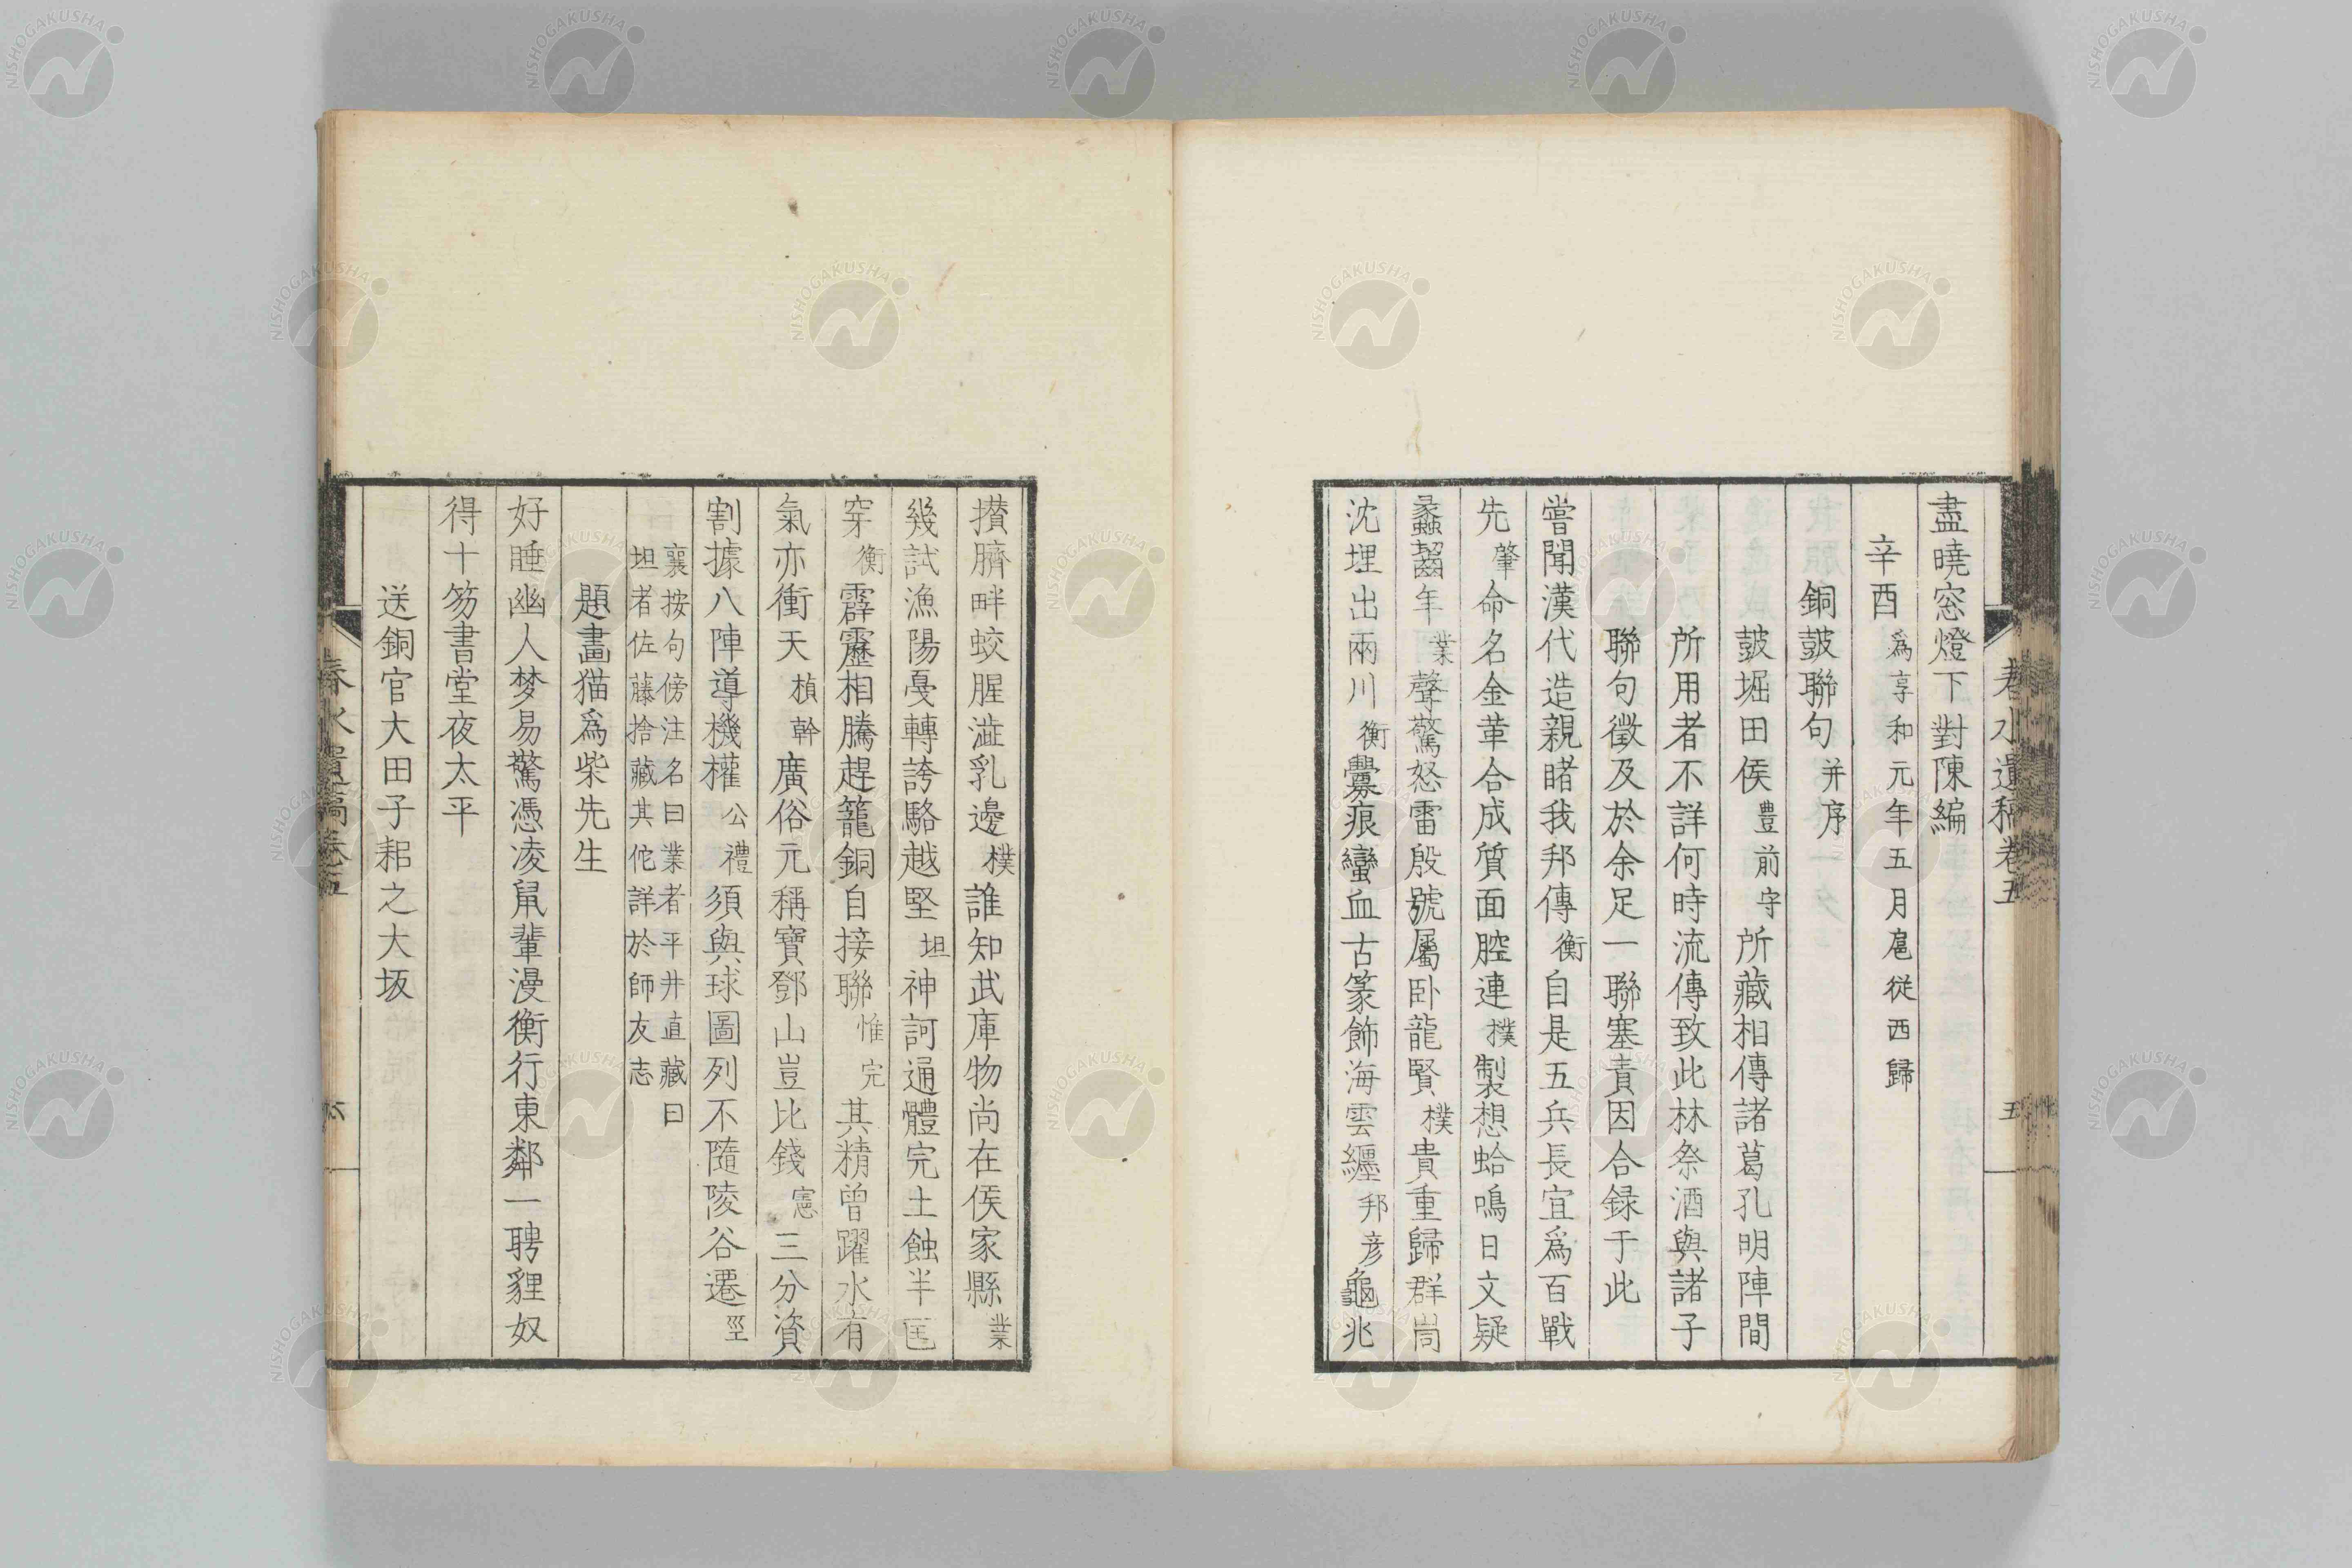 盡曉窓燈下對陳編
辛酉 爲享和元年五月扈從西歸
銅鼓聯句 并序
鼓堀田侯 豊前守 所藏相傳諸葛孔明陣間
所用者不詳何時流傳致此林祭酒與諸子
聯句徵及於余足一聯塞責因合録于此
嘗聞漢代造親睹我邦傳 衡 自是五兵長宜爲百戰
先 肇 命名金革合成質面腔連 樸 製想蛤鳴日文疑
蠡齧年 業 聲驚怒雷殷號屬卧龍賢 樸 貴重歸群峝
沈埋出兩川 衡 釁痕蠻血古篆飾海雲纏 邦彦 龜兆
春水遺稿卷五
五
攅臍畔蛟腥澁乳邊 樸 誰知武庫物尚在侯家縣 業
幾試漁陽戞轉誇駱越堅 坦 神訶通體完土蝕半匡
穿 衡 霹靂相騰趕籠銅自接聯 惟完 其精曾躍水有
氣亦衝天 楨幹 廣俗元稱寶鄧山豈比錢 憲 三分資
割據八陣導機權 公禮 須與球圖列不隨陵谷遷 坙
襄按句傍注名曰業者平井直藏曰
坦者佐藤捨藏其佗詳於師友志
題畫猫爲柴先生
好睡幽人梦易驚憑凌鼠輩漫衡行東鄰一聘貍奴
得十笏書堂夜太平
送銅官大田子耜之大坂
春水遺稿卷五
六
NISHOGAKUSHA